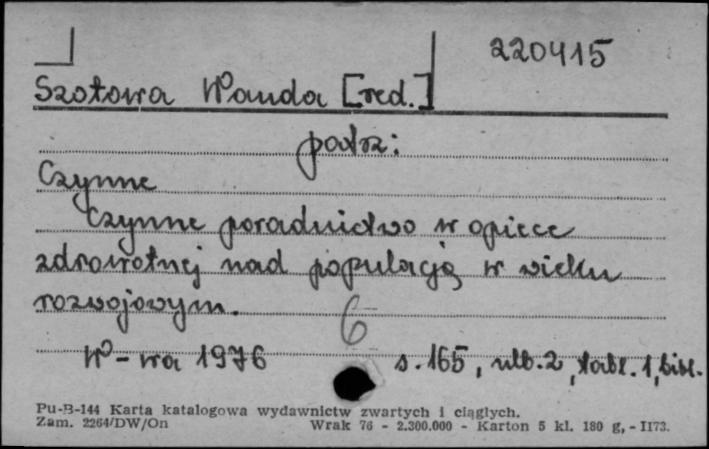 220415
Szotowa Wanda [red.]
patrz:
Czynne
Czynne poradnictwo w opiece
zdrowotnej nad populacją w wieku
rozwojowym.
6
W-wa 1976 s. 165, nlb. 2, tabl. 1, bibl.
Pu-B-144 Karta katalogowa wydawnictw zwartych i ciągłych.
Zam. 2264/DW/On Wrak 76 - 2.300.000 - Karton 5 kl. 180 g, - II73.